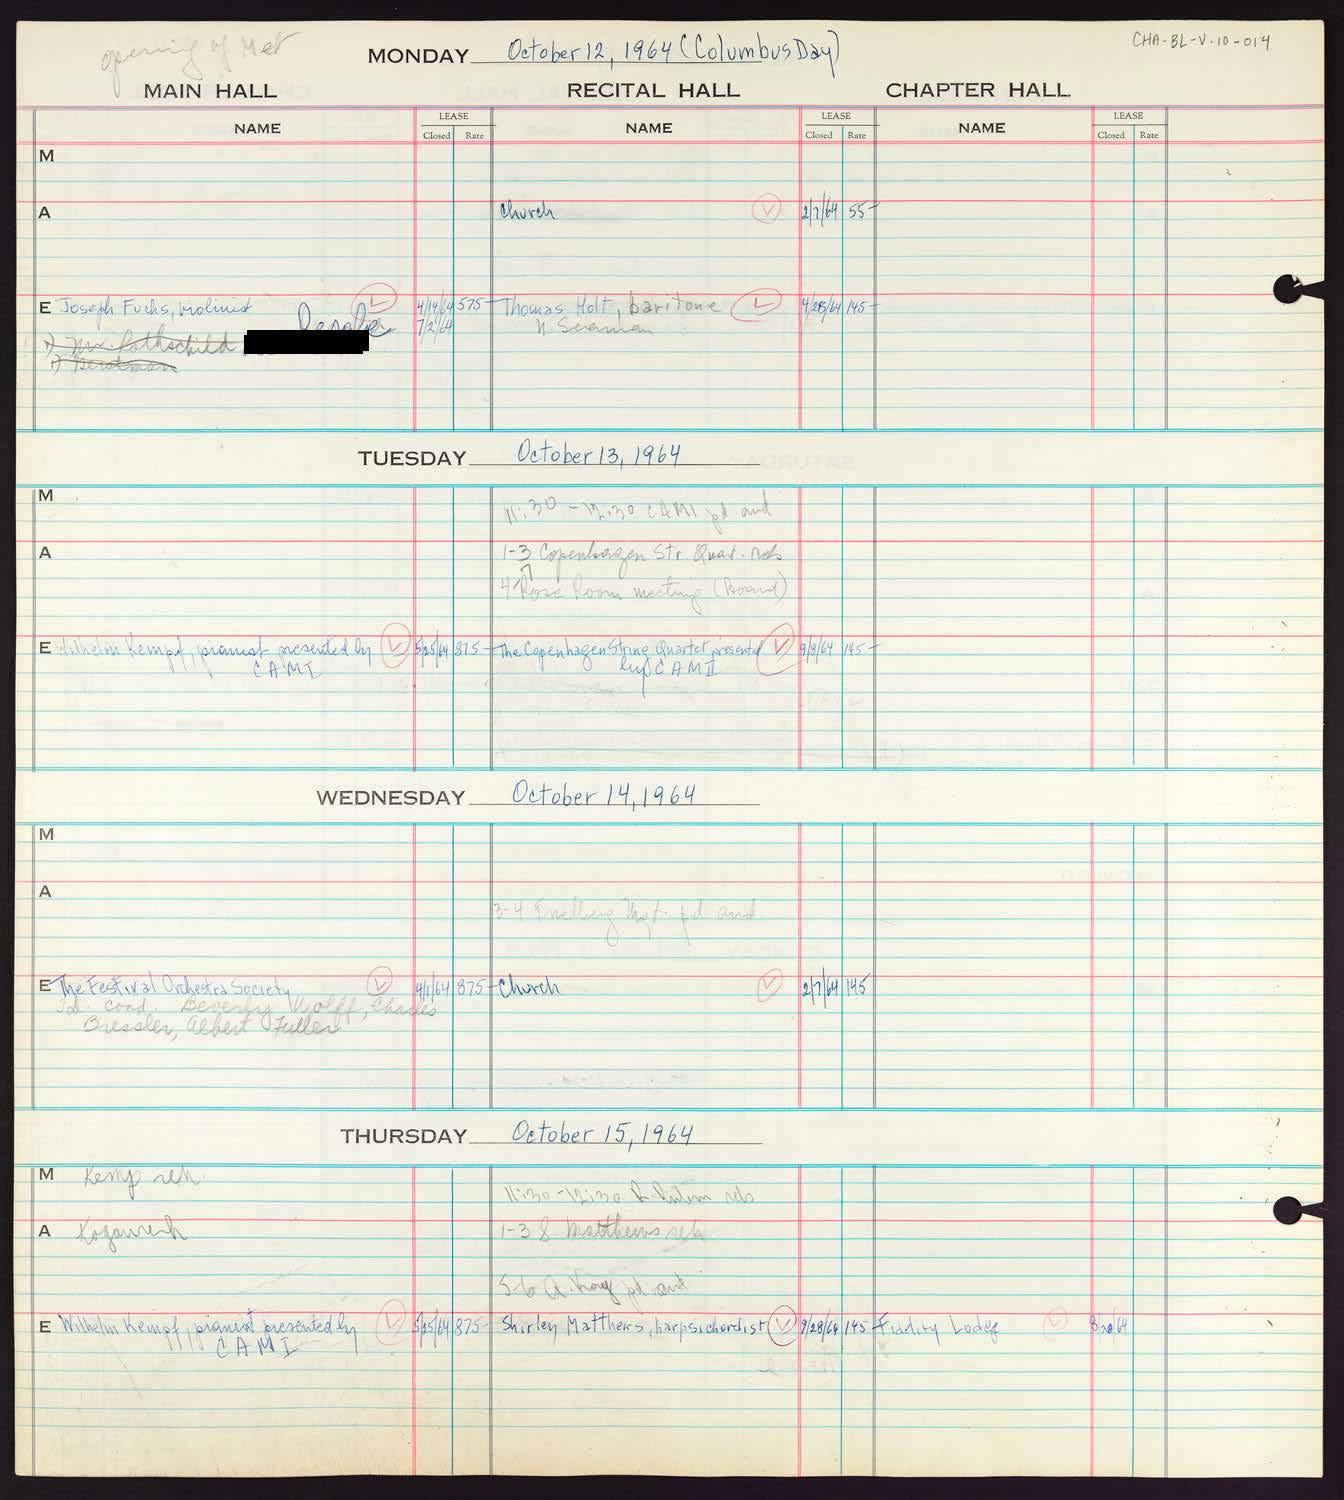 opening of Met
MONDAY October 12, 1964 (Columbus Day)
CHA-BL-V-10-014
MAIN HALL RECITAL HALL CHAPTER HALL
NAME LEASE Closed Rate NAME LEASE Closed Rate NAME LEASE Closed Rate
M
A Church 2/7/64 55-
E Joseph Fuchs, violinist 4/14/64 575- Thomas Holt, baritone 4/28/64 145-
7/2/64 N. Seaman
Mr. Rothschild
TUESDAY October 13, 1964
M
11:30 - 12:30 CAMI pd aud
A 1-3 Copenhagen Str. Quar. reh
4 Rose Room meeting (Board)
E Wilhelm Kempf, pianist presented by 5/25/64 875- The Copenhagen String Quartet presented 9/8/64 145-
CAMI by CAMI
WEDNESDAY October 14, 1964
M
A
3-4 pd aud.
E The Festival Orchestra Society 4/1/64 875- Church 2/7/64 145
cond. Beverly Wolff, Charles
Bressler, Albert Fuller
THURSDAY October 15, 1964
M Kemp reh.
11:30-12:30 reh
A 1-3 S Matthews reh
5-6 A. pd aud
E Wilhelm Kempf, pianist presented by 5/25/64 875- Shirley Matthews, harpsichordist 9/28/64 145 Fidelity Lodge 8/20/64
CAMI